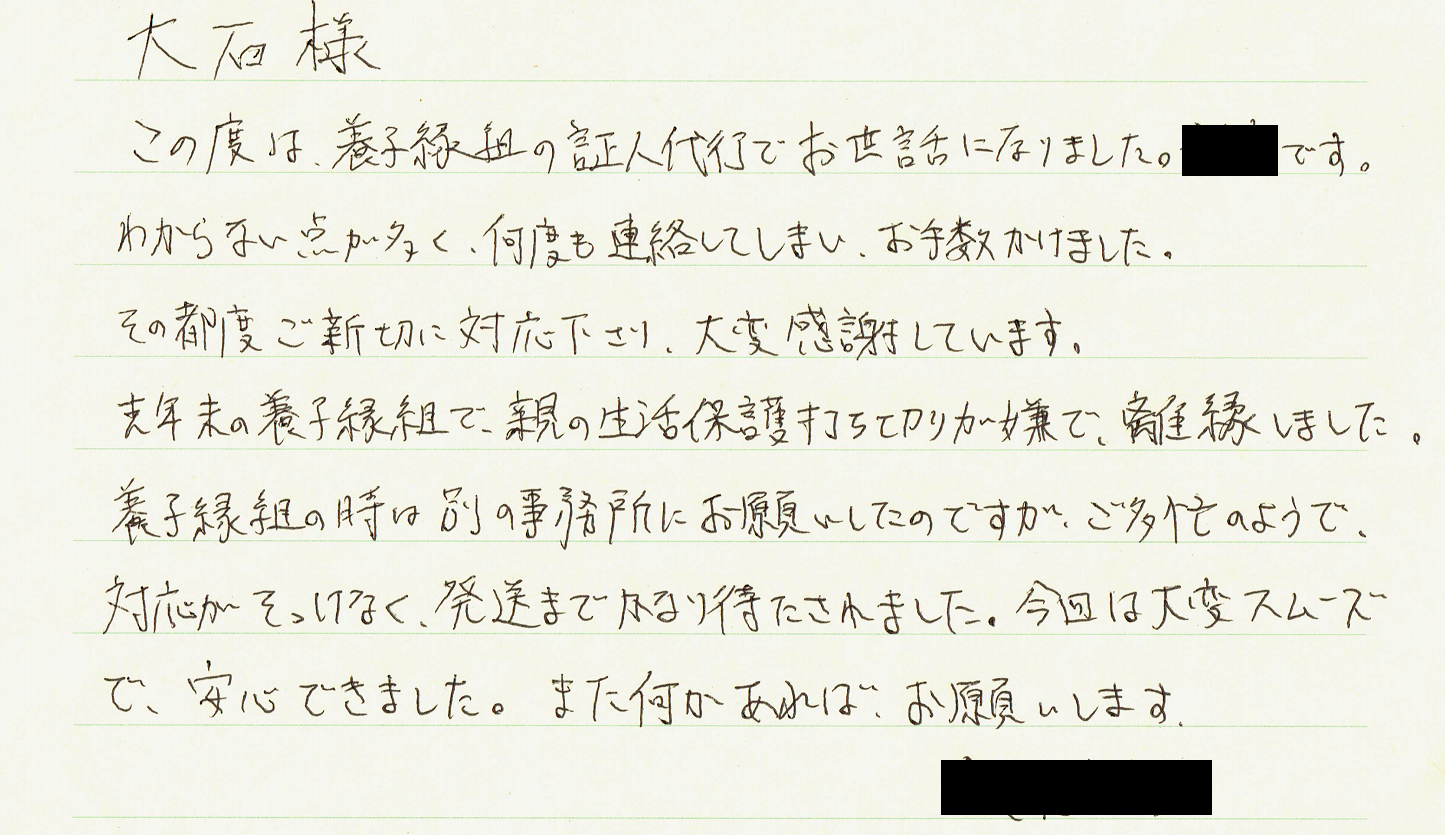 大石様
この度は、養子縁組の証人代行でお世話になりました。です。
わからない点が多く、何度も連絡してしまい、お手数かけました。
その都度ご新切に対応下さり、大変感謝しています。
去年末の養子縁組で、親の生活保護打ち切りが嫌で、離縁しました。
養子縁組の時は別の事務所にお願いしたのですが、ご多忙のようで、
対応がそっけなく、発送までかなり待たされました。今回は大変スムーズ
で、安心できました。また何かあれば、お願いします。